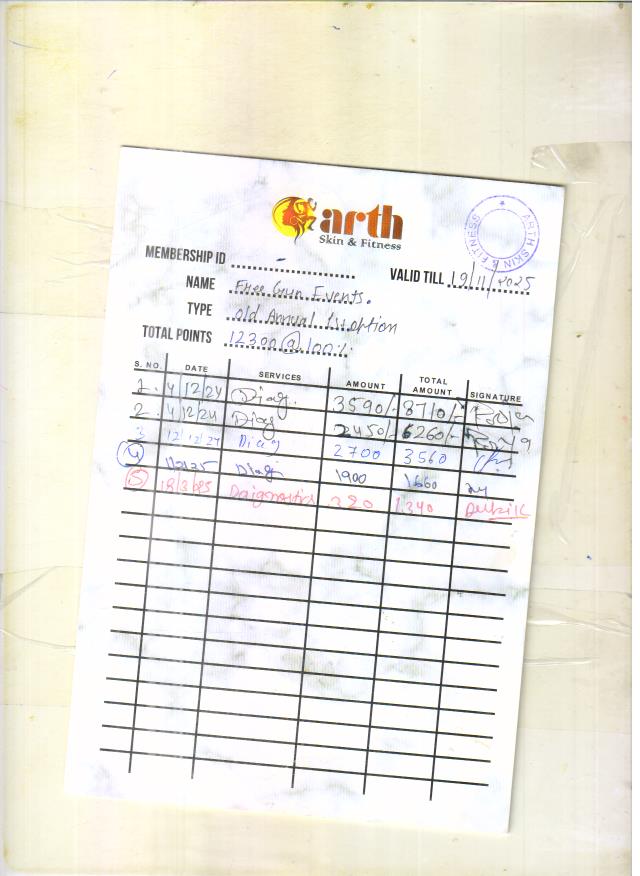 arth
Skin & Fitness
ARTH SKIN & FITNESS
MEMBERSHIP ID
VALID TILL 19/11/2025
NAME Free Gun Events.
TYPE old Annual
TOTAL POINTS 12300 @ 100%
S. NO. DATE SERVICES AMOUNT TOTAL AMOUNT SIGNATURE
1. 4/12/24 Diag. 3590/- 8710/-
2. 4/12/24 Diag 2450/- 6260/-
3 12/12/24 Diag 2700 3560
4 Diag 1900 1660
5 Daignostics 320 1340